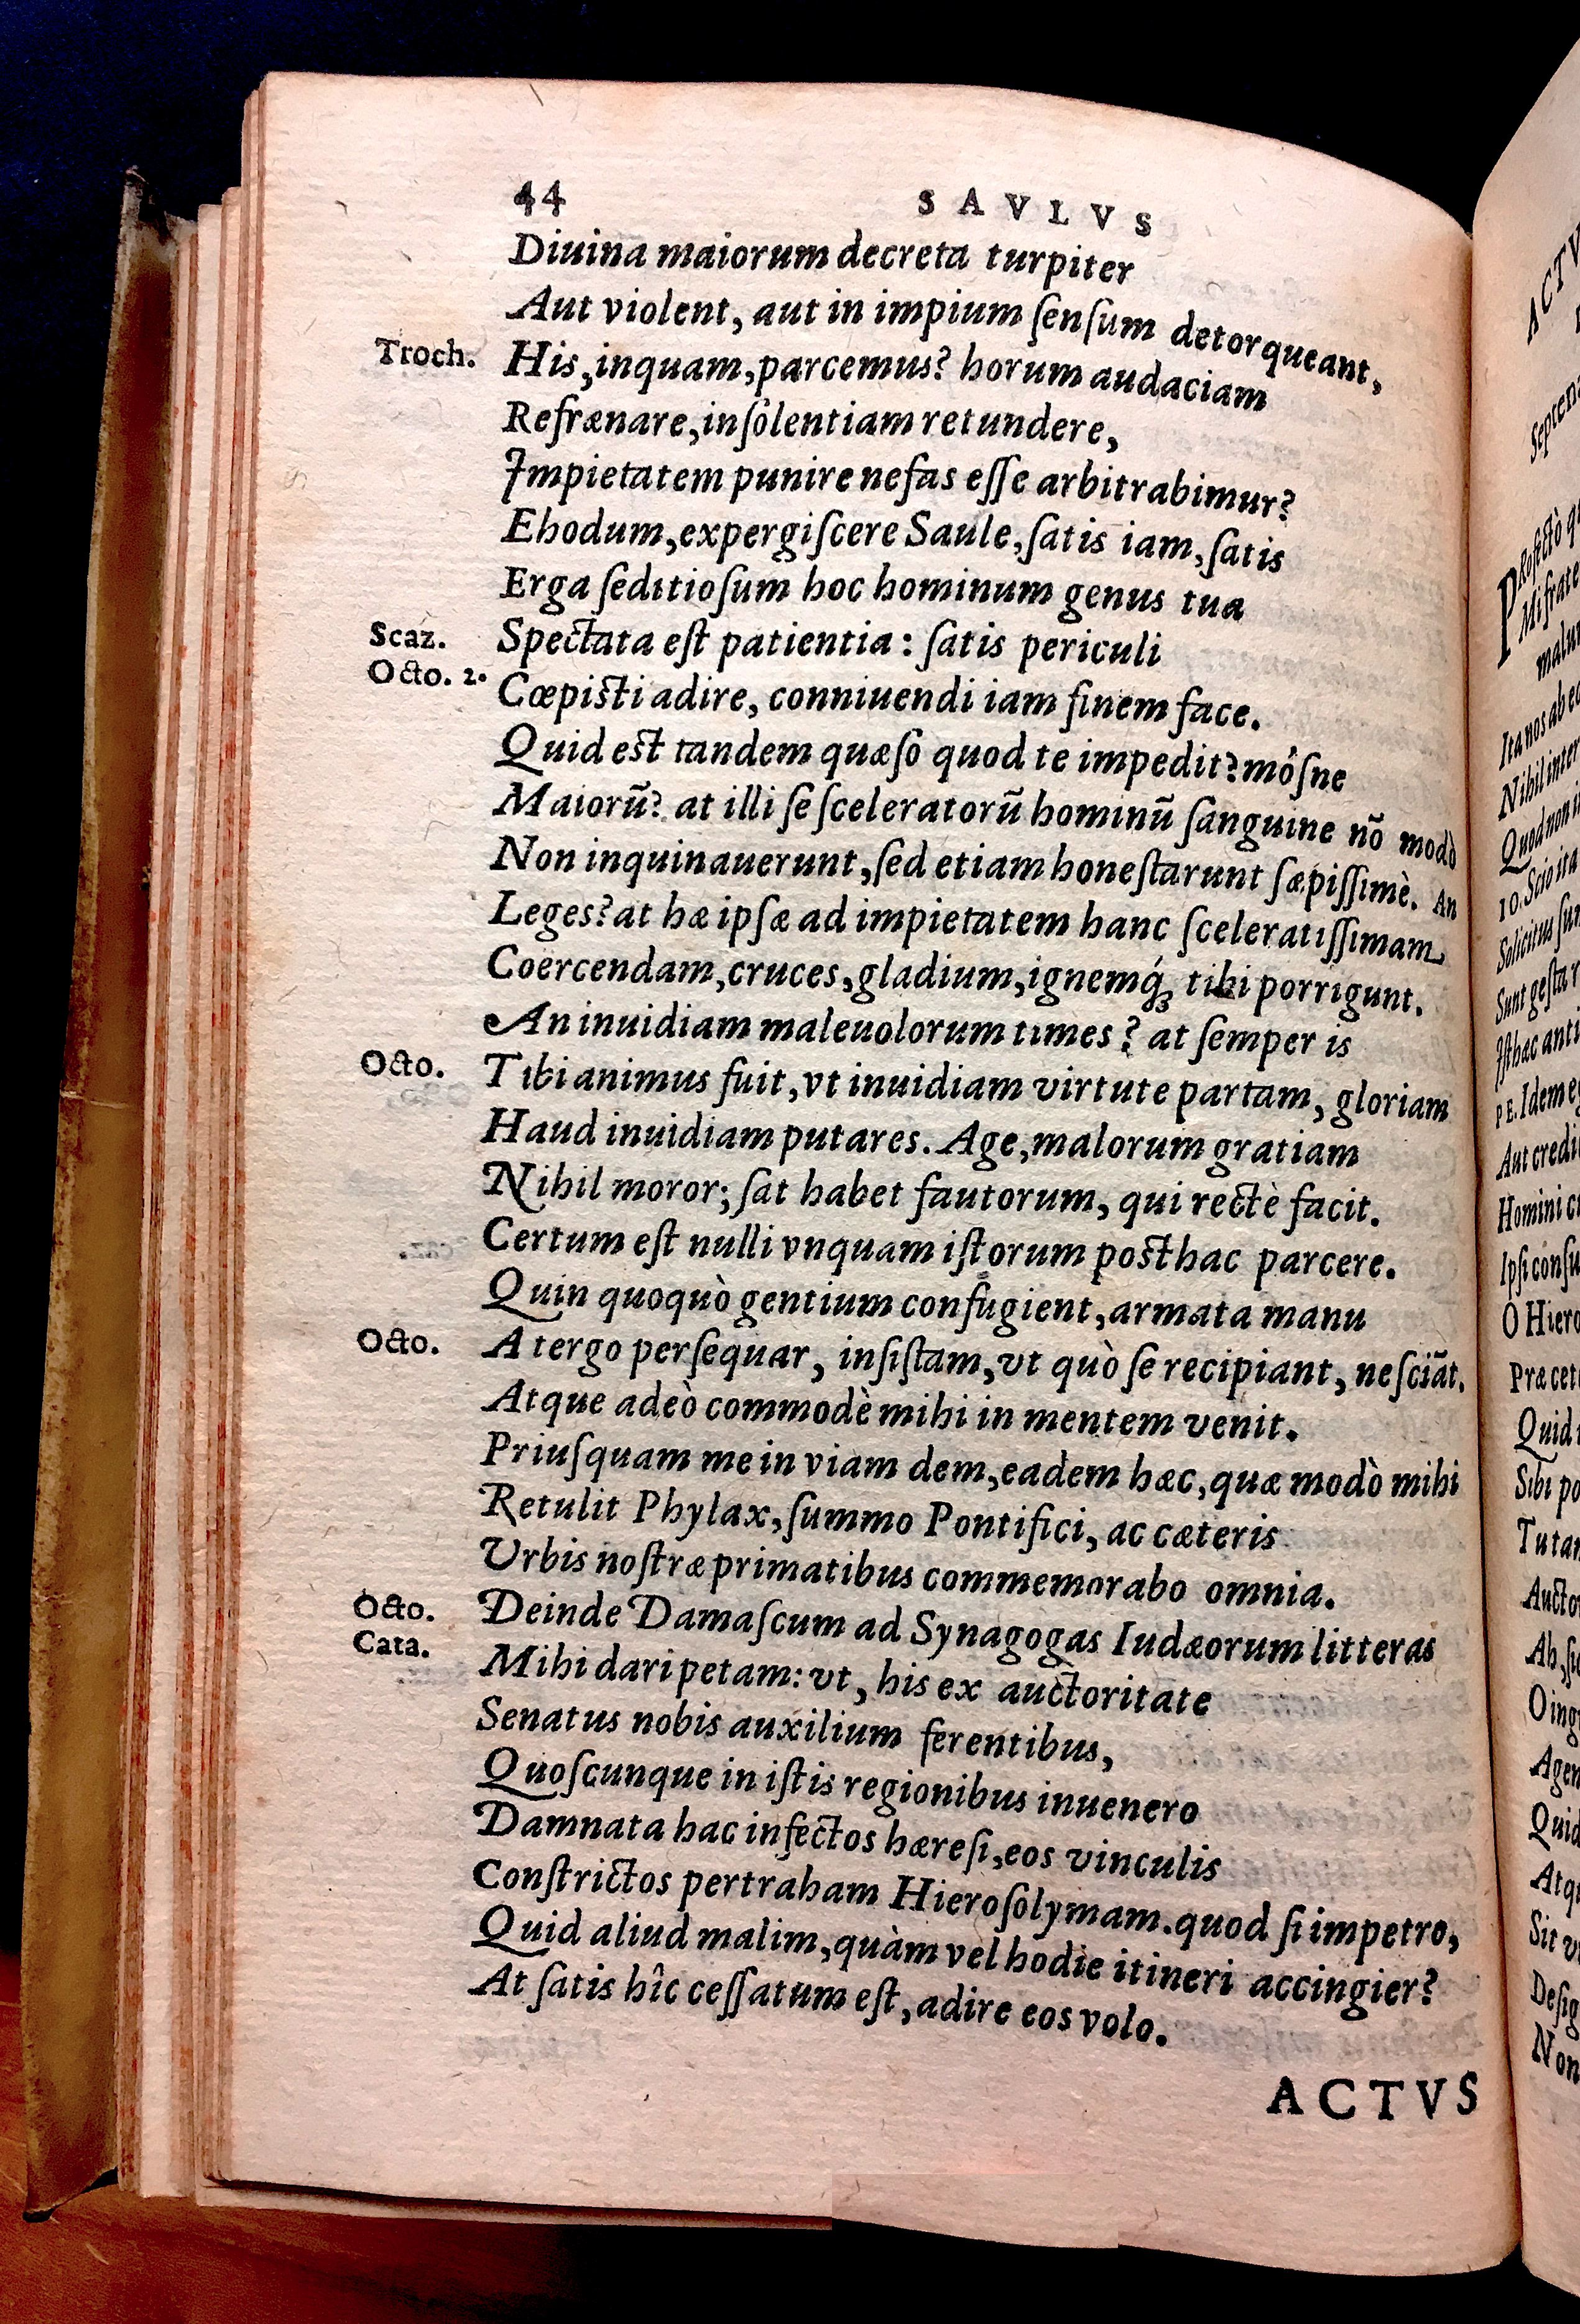 44 SAVLVS
Diuina maiorum decreta turpiter
Aut violent, aut in impium ſenſum detorqueant,
Troch. His, inquam, parcemus? horum audaciam
Refrænare, inſolentiam retundere,
Impietatem punire nefas eſſe arbitrabimur?
Ehodum, expergiſcere Saule, ſatis iam, ſatis
Erga ſeditioſum hoc hominum genus tua
Scaz. Spectata eſt patientia: ſatis periculi
Octo. 2. Cœpisti adire, conniuendi iam finem face.
Quid est tandem quæſo quod te impedit? mósne
Maiorū? at illi ſe ſceleratorū hominū ſanguine nō modò
Non inquinauerunt, ſed etiam honeſtarunt ſæpiſſimè. An
Leges? at hæ ipſæ ad impietatem hanc ſceleratiſſimam
Coercendam, cruces, gladium, ignemq́; tibi porrigunt.
An inuidiam maleuolorum times? at ſemper is
Octo. Tibi animus fuit, vt inuidiam virtute partam, gloriam
Haud inuidiam putares. Age, malorum gratiam
Nihil moror; ſat habet fautorum, qui rectè facit.
Certum eſt nulli vnquam iſtorum posthac parcere.
Quin quoquò gentium confugient, armata manu
Octo. A tergo perſequar, inſiſtam, vt quò ſe recipiant, neſciāt.
Atque adeò commodè mihi in mentem venit.
Priuſquam me in viam dem, eadem hæc, quæ modò mihi
Retulit Phylax, ſummo Pontifici, ac cæteris
Vrbis noſtræ primatibus commemorabo omnia.
Octo. Deinde Damaſcum ad Synagogas Iudæorum litteras
Cata. Mihi dari petam: vt, his ex auctoritate
Senatus nobis auxilium ferentibus,
Quoſcunque in iſtis regionibus inuenero
Damnata hac infectos hæreſi, eos vinculis
Conſtrictos pertraham Hieroſolymam. quod ſi impetro,
Quid aliud malim, quàm vel hodie itineri accingier?
At ſatis hîc ceſſatum eſt, adire eos volo.
ACTVS